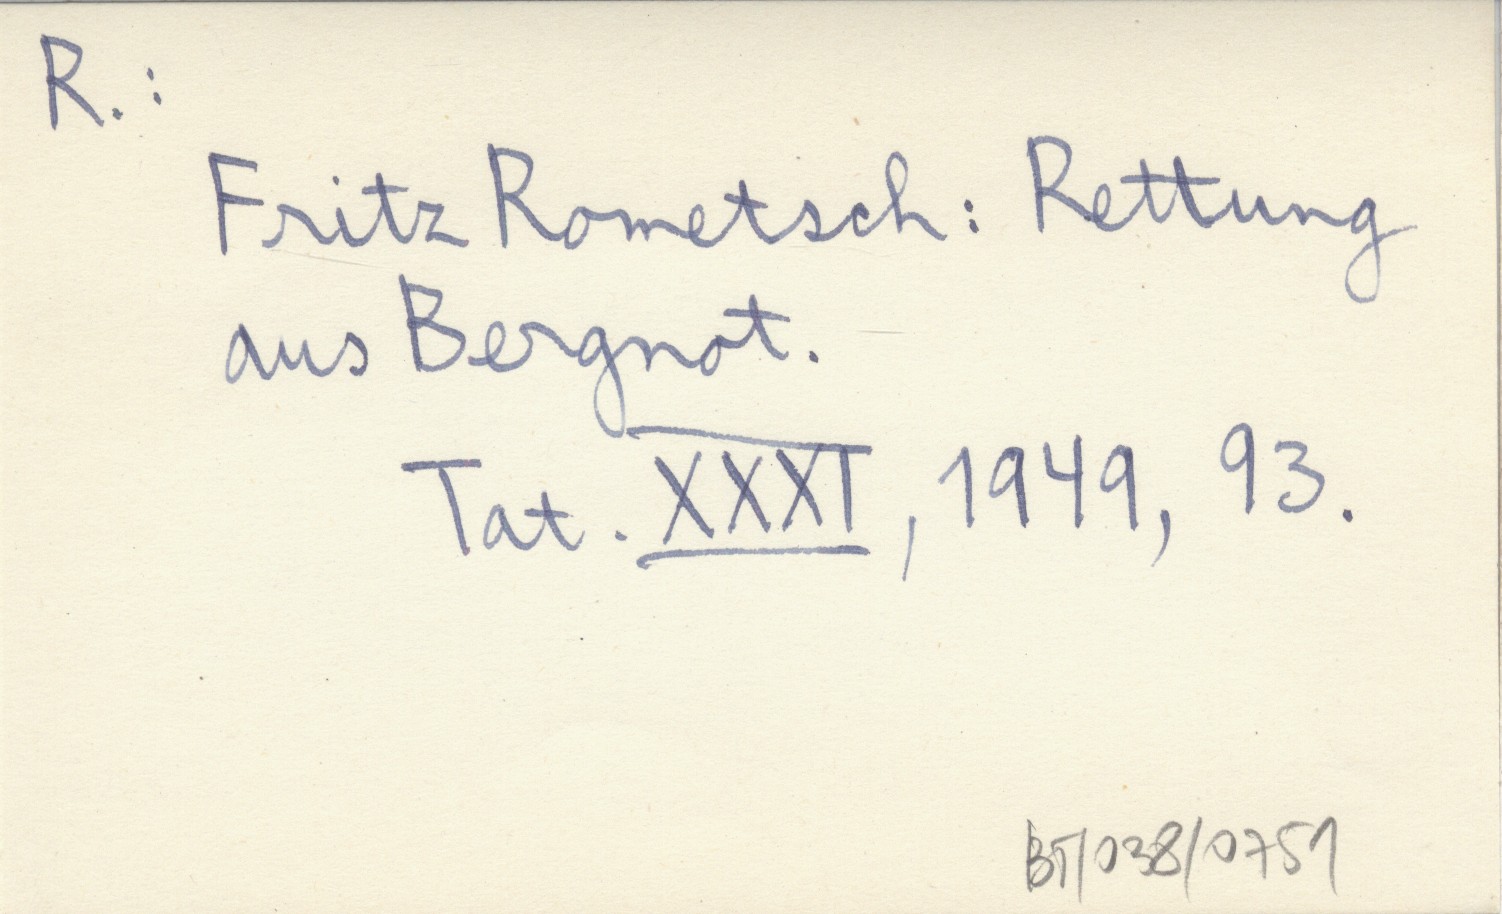 R.:
Fritz Rometsch: Rettung
aus Bergnot.
Tat. XXXI, 1949, 93.
BT/038/0751